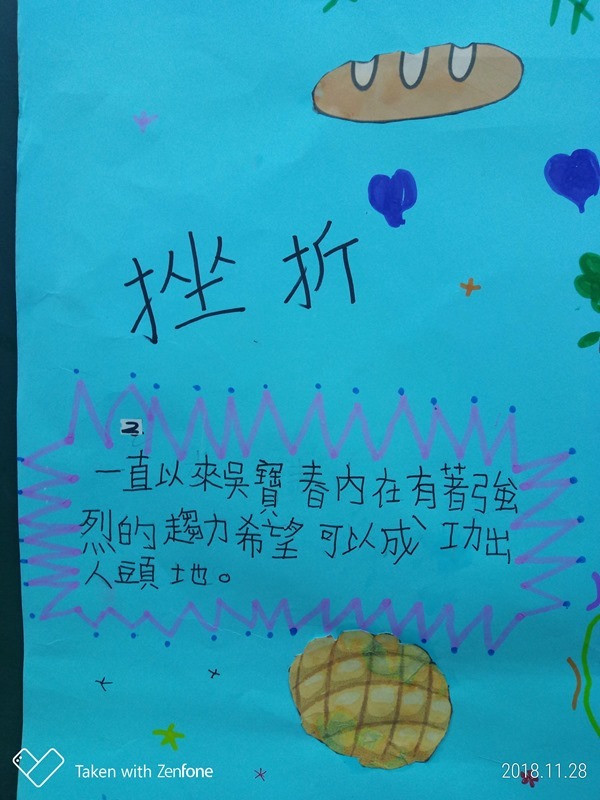 挫折
2
一直以來吳寶春內在有著強
烈的趨力希望可以成功出
人頭地。
Taken with Zenfone
2018.11.28